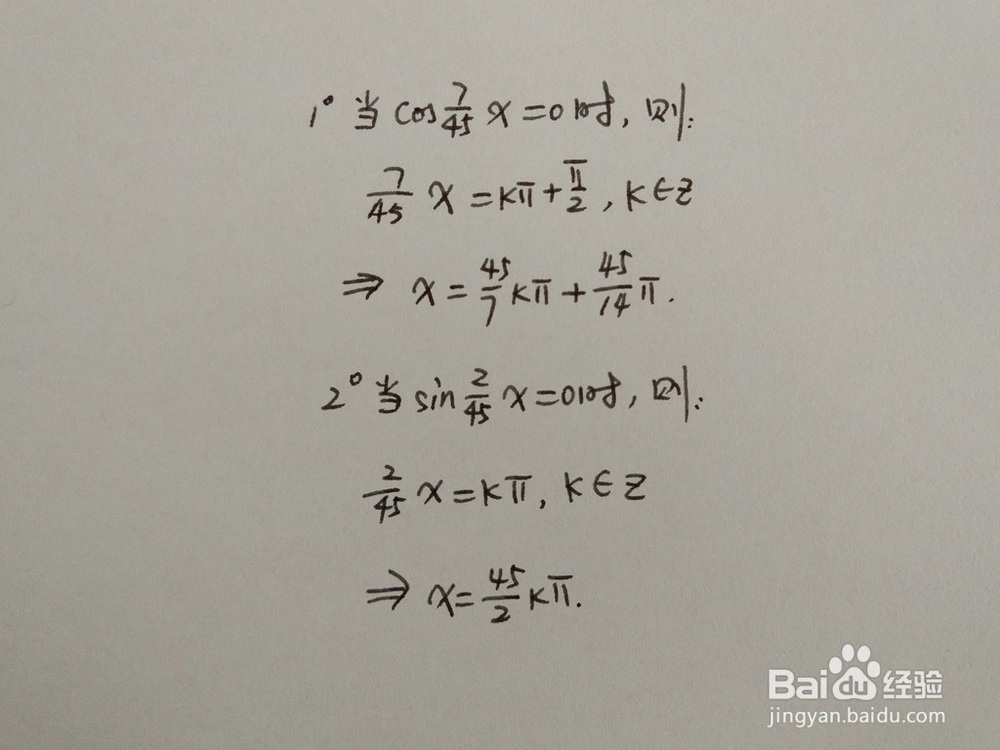 1° 当 cos 7/45 x = 0 时, 则:
7/45 x = kπ + π/2, k∈Z
⇒ x = 45/7 kπ + 45/14 π.
2° 当 sin 2/45 x = 0 时, 则:
2/45 x = kπ, k∈Z
⇒ x = 45/2 kπ.
Baidu 经验
jingyan.baidu.com